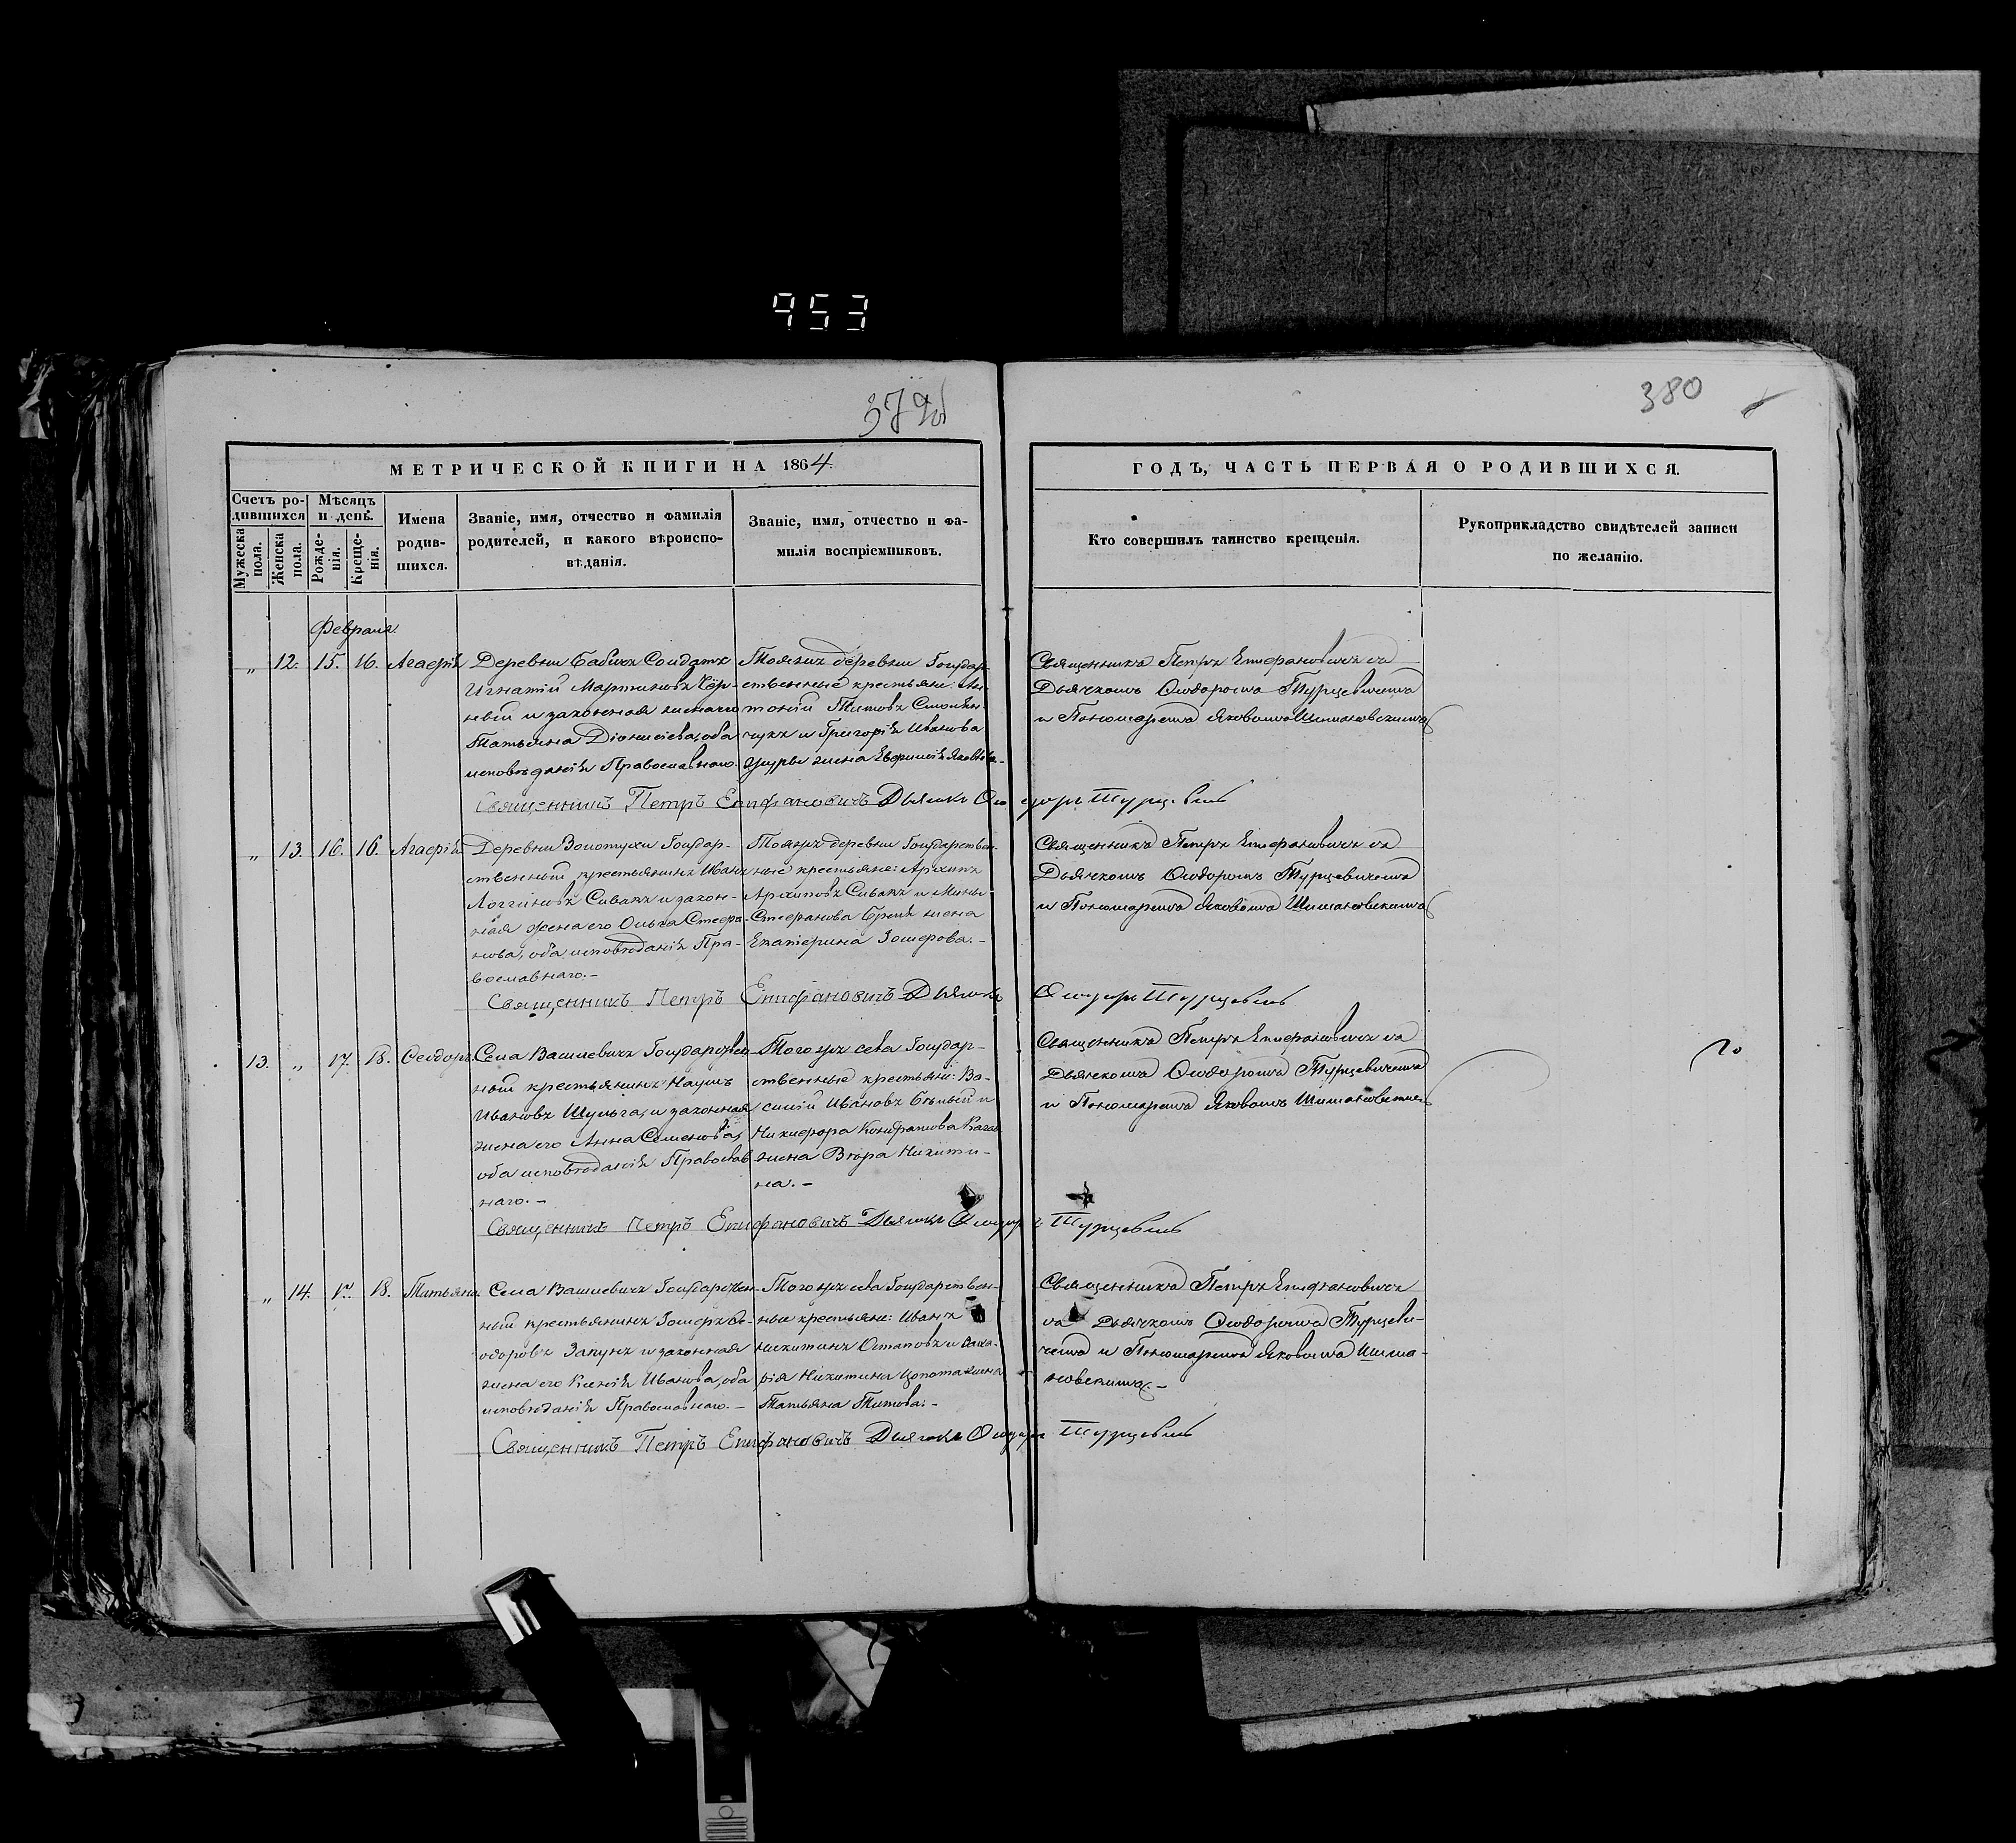 953
379об
380
МЕТРИЧЕСКОЙ КНИГИ НА 1864
ГОДЪ, ЧАСТЬ ПЕРВАЯ О РОДИВШИХСЯ.
Счетъ ро-
дившихся
Мужеска пола.
Женска пола.
Мѣсяцъ
и день.
Рожде-
нія.
Креще-
нія.
Имена
родив-
шихся.
Званіе, имя, отчество и фамилія
родителей, и какого вѣроиспо-
вѣданія.
Званіе, имя, отчество и фа-
милія воспріемниковъ.
Кто совершилъ таинство крещенія.
Рукоприкладство свидѣтелей записи
по желанію.
Февраля
„ 12. 15. 16. Агафія
Деревни Бабичъ Солдатъ
Игнатій Мартиновъ Чёр-
ный и законная жена его
Татьяна Діонисіева, оба
исповѣданія Православнаго.
Тояжъ деревни Государ-
ственные крестьяне: Ан-
тоній Титовъ
и Григорія Иванова
жена Евфимія Яковлева.
Священникъ Петръ Епифановичъ съ
Дьячкомъ Ѳеодоромъ Турцевичемъ
и Пономаремъ Яковомъ Шимановскимъ
Священникъ Петръ Епифановичъ Дьячокъ Ѳеодоръ Турцевичъ
„ 13. 16. 16. Агафія
Деревни Золотухи Государ-
ственный крестьянинъ Иванъ
Логгиновъ Сивакъ и закон-
ная жена его Ольга Стефа-
нова, оба исповѣданія Пра-
вославнаго.–
Тояжъ деревни Государствен-
ные крестьяне: Архипъ
Архиповъ Сивакъ и Мины
Стефанова жена
Екатерина Зотерова.–
Священникъ Петръ Епифановичъ съ
Дьячкомъ Ѳеодоромъ Турцевичемъ
и Пономаремъ Яковомъ Шимановскимъ
Священникъ Петръ Епифановичъ Дьячокъ Ѳеодоръ Турцевичъ
13. „ 17. 18. Ѳеодоръ
Села Вашиевичъ Государствен-
ный крестьянинъ Наумъ
Ивановъ Шульга, и законная
жена его Анна Семенова,
оба исповѣданія Православ-
наго.–
Того жъ села Государ-
ственные крестьяне: Ва-
силій Ивановъ Бѣлый и
Никифора Кондратова
жена Вѣра Никити-
на.–
Священникъ Петръ Епифановичъ съ
Дьячкомъ Ѳеодоромъ Турцевичемъ
и Пономаремъ Яковомъ Шимановскимъ
Священникъ Петръ Епифановичъ Дьячокъ Ѳеодоръ Турцевичъ
„ 14. 17. 18. Татьяна
Села Вашиевичъ Государствен-
ный крестьянинъ Зотеръ Ѳе-
одоровъ Запунъ и законная
жена его Ксенія Иванова, оба
исповѣданія Православнаго.–
Того жъ села Государствен-
ные крестьяне: Иванъ
Никитинъ Остаповъ и Заха-
рія Никитина жена
Татьяна Титова.–
Священникъ Петръ Епифановичъ
съ Дьячкомъ Ѳеодоромъ Турцеви-
чемъ и Пономаремъ Яковомъ Шима-
новскимъ.–
Священникъ Петръ Епифановичъ Дьячокъ Ѳеодоръ Турцевичъ